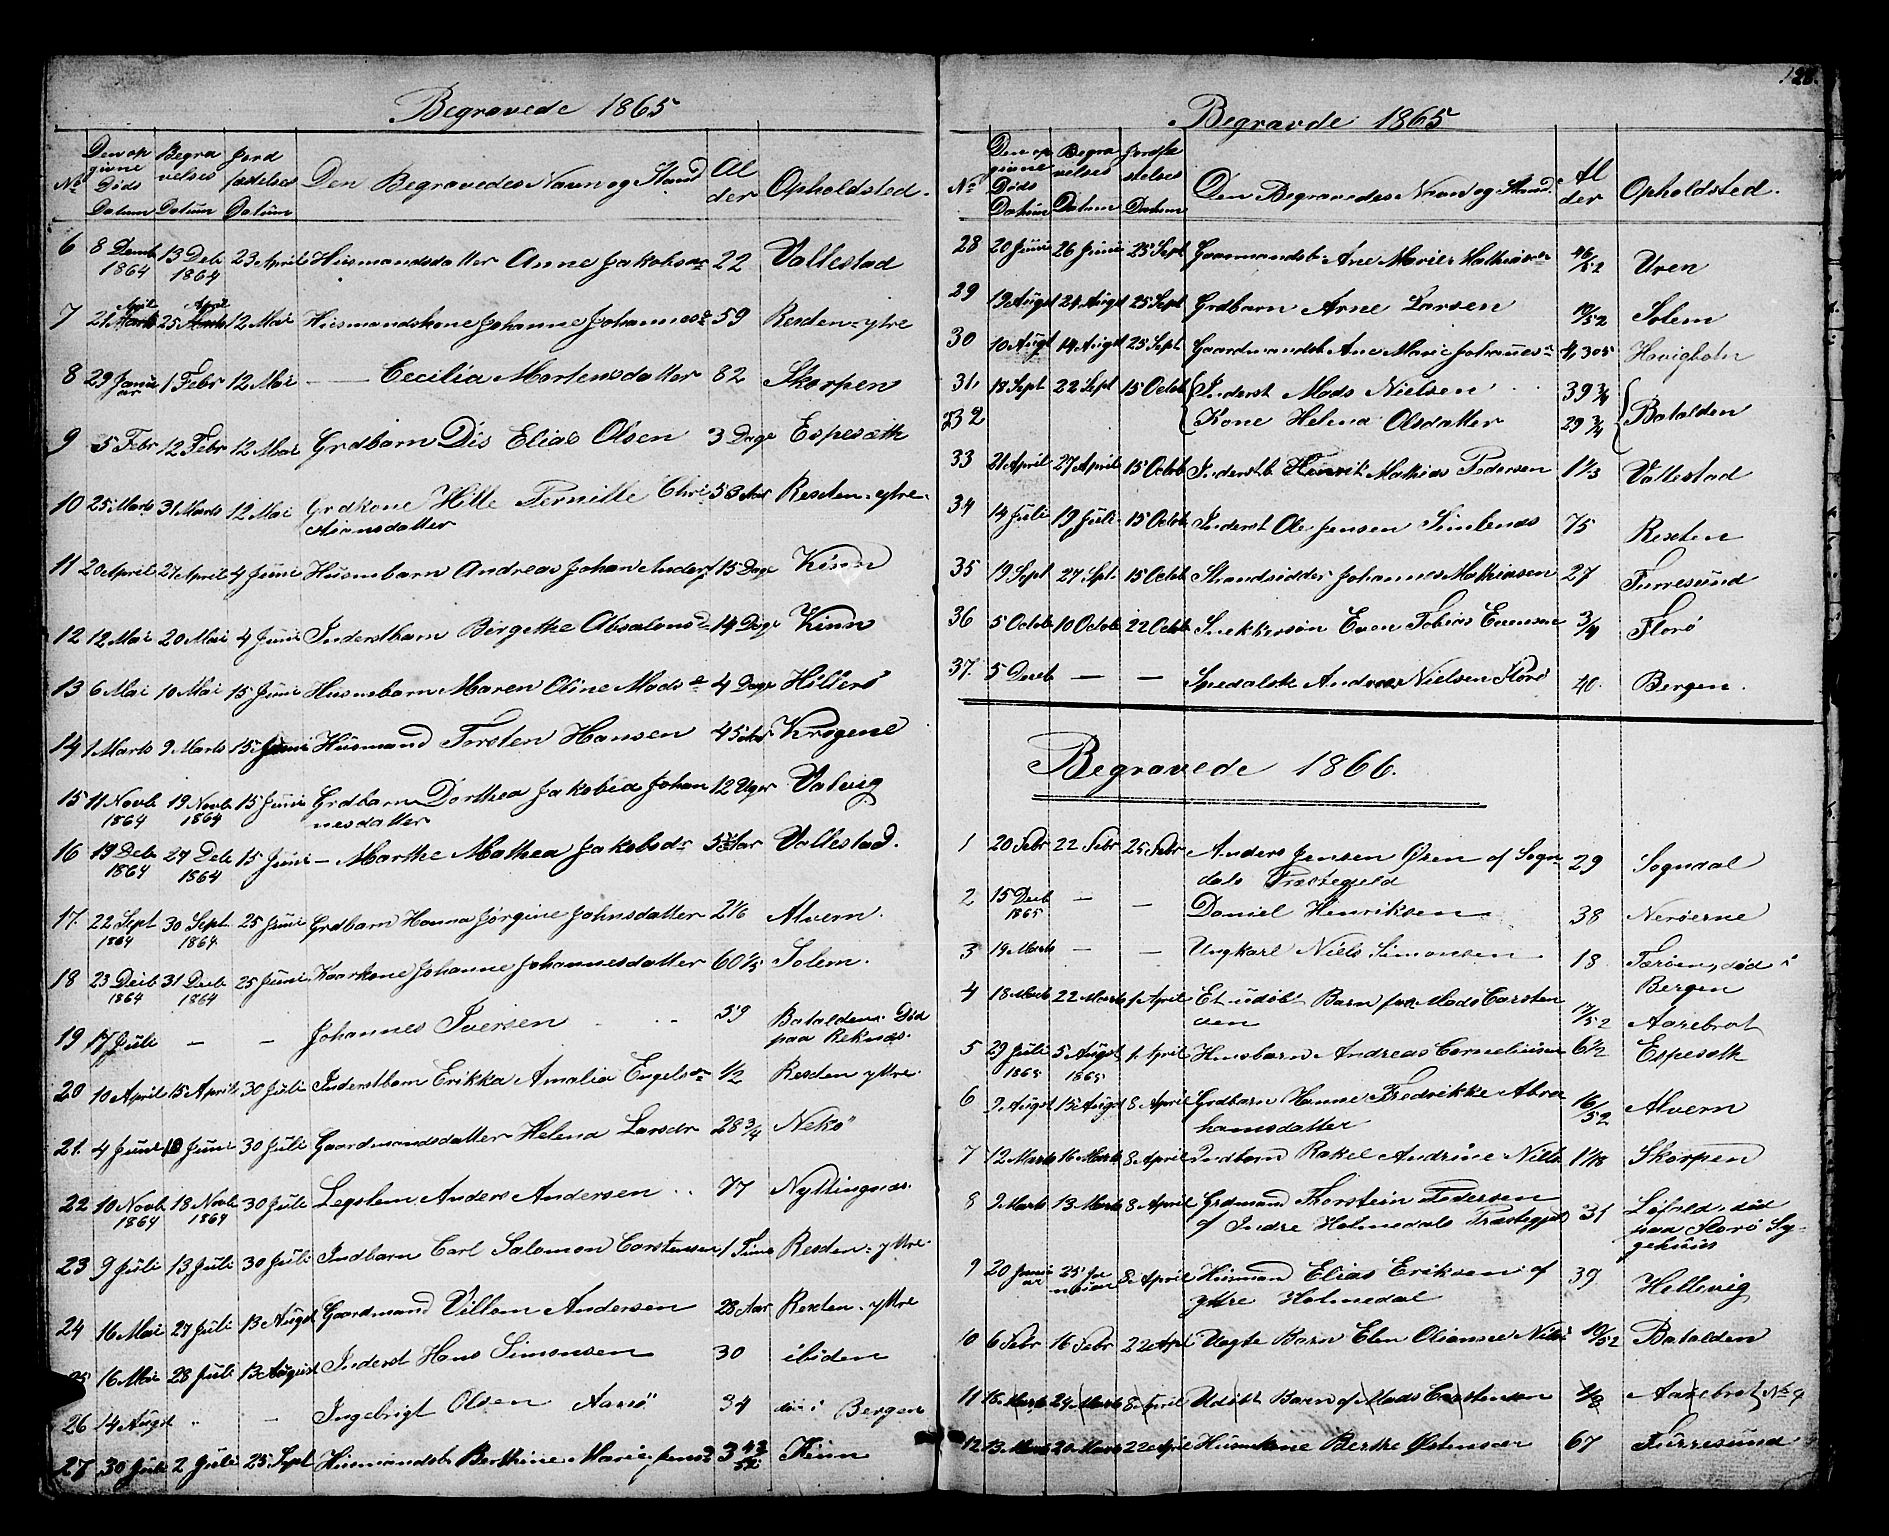 Begravede 1865
No | Den opgivne Døds Datum | Begravelses Datum | Jordfæstelses Datum | Den Begravedes Navn og Stand | Alder | Opholdsted.
6 | 8 Decmb 1864 | 13 Decb 1864 | 23 April | Husmandsdatter Anne Jakobsdr | 22 | Vallestad
7 | 21 April | 25 April | 12 Mai | Husmandskone Johanne Johannesd | 59 | Resten-ytre
8 | 29 Januar | 1 Febr | 12 Mai | — Cecilia Mortensdatter | 82 | Skorpen
9 | 5 Febr | 12 Febr | 12 Mai | Grdbarn Dis Elias Olsen | 3 Dage | Espesæth
10 | 25 Marts | 31 Marts | 12 Mai | Grdkone Hille Pernille Chri-
stiansdatter | 53 Aar | Resten-ytre
11 | 20 April | 27 April | 4 Juni | Husmbarn Andreas Johan Anders | 15 Dage | Kinn
12 | 12 Mai | 20 Mai | 4 Juni | Inderstbarn Birgithe Absalonsd | 14 Dage | Kinn
13 | 6 Mai | 10 Mai | 15 Juni | Husmbarn Maren Oline Madsd | 4 Dage | Hillerö
14 | 1 Marts | 9 Marts | 15 Juni | Husmand Torsten Hansen | 45 | Krogene
15 | 11 Novb 1864 | 19 Novb 1864 | 15 Juni | Grdbarn Dorthea Jakobia Johan
nesdatter | 12 Uger | Valvig
16 | 19 Decb 1864 | 27 Decb 1864 | 15 Juni | — Marthe Mathea Jakobsdr | Aar | Vallestad.
17. | 22 Sept 1864 | 30 Sept 1864 | 25 Juni | Grdbarn Hanna Jørgine Johnsdatter | 2 1/6 | Alvern.
18 | 23 Decb 1864 | 31 Decb 1864 | 25 Juni | Kaarkone Johanne Johannesdatter | 60 1/5 | Solem.
19 | 17 Juli | — | — | Johannes Iversen | 39 | Batalden. Død
paa Reknæs.
20 | 10 April | 15 April | 30 Juli | Inderstbarn Erikka Amalia Engelsdr | 1/2 | Resten yttre.
21. | 4 Juni | 10 Juni | 30 Juli | Gaardmandsdatter Helena Larsdr | 28 3/4 | Nekö
22 | 10 Novb 1864 | 18 Novb 1864 | 30 Juli | Legslem Anders Andersen | 77 | Nyttingnæs.
23 | 9 Juli | 13 Juli | 30 Juli | Indbarn Carl Salomon Carstensen | 1 Time | Resten-yttre.
24 | 16 Mai | 27 Juli | 13 August | Gaardmand Villom Andersen | 28 Aar | Resten-yttre
16 Mai | 28 Juli | 13 August | Inderst Hans Simonsen | 30 | ibiden
26 | 14 Augst | " | — | Ingebrigt Olsen Aarsö | 34 | død i Bergen
27 | 30 Juli | 2 Juli | 25 Sept | Husmandsb Berthine Marie Jensd | 3 43/52 | Kinn
128.
Begravde 1865
No | Den opgivne Døds Datum | Begravelses Datum | Jordfæstelses Datum | Den Begravedes Navn og Stand. | Alder | Opholdsted.
28 | 20 Juni | 26 Juni | 25 Sept | Gaarmandsb. Ane Marie Mathiasdr | 46/52 | Uren
29 | 19 Augst | 24 Augst | 25 Sept | Grdbarn Arne Larsen | 10/52 | Solem
30 | 10 Augst | 14 Augst | 25 Sept | Gaardmandsb Ane Marie Johannesd | | Havigholm
31. | 18 Sept | 22 Sept | 15 Octob | Inderst Mads Nielsen | 39 3/4 | Batalden
32 | Kone Helena Olsdatter | 29 3/4
33 | 21 April | 27 April | 15 Octob | Inderstb Henrik Mathias Pedersen | 1 1/3 | Vallestad
34 | 14 Juli | 19 Juli | 15 Octob | Inderst Ole Jensen Simlenæs | 75 | Resten
35 | 19 Sept | 27 Spt. | 15 Octob | Strandsidder Johannes Mathiasen | 27 | Furresund
36 | 5 Octob | 10 Octob | 22 Octob | Snekkersøn Even Tobias Evensen | 3/4 | Florö
37. | 5 Decb | — | — | Spedalsk Andreas Nielsen Florö | 40. | Bergen.
Begravede 1866.
1 | 20 Febr | 22 Febr | 25 Febr | Anders Jensen Øren af Sogn-
dals Præstegjeld | 29 | Sogndal
2 | 15 Decb 1865 | — | — | Daniel Henriksen | 38 | Nerøerne
3 | 19 Marts | — | — | Ungkarl Niels Simonsen | 18 | Færøen, død i
Bergen
4 | 18 Marts | 22 Marts | 1 April | Et udøbt Barn fra Mads Carsten
sen | 17/52 | Aarebrot
5 | 29 Juli 1865 | 5 Augst 1865 | 1 April | Husbarn Andreas Corneliusen | 6 1/2 | Espeseth
6 | 9 Augst | 15 Augst | 8 April | Grdbarn Hanne Fredrikke Abra
hamsdatter | 16/52 | Alvern
7 | 12 Marts | 16 Marts | 8 April | Indbarn Rakel Andrine Nilsd | | Skorpen
8 | 9 Marts | 13 Marts | 8 April | Grdmand Thorstein Pedersen
af Indre Holmedals Præstegjeld | 31 | død
paa Florö Sy-
gehuus
9 | 20 Januar | 25 Januar | 8 April | Husmand Elias Eriksen af
yttre Holmedal | 39. | Hellevig
10 | 6 Febr | 16 Febr | 22 Apl | Uægte Barn Elen Oliansine Nilsd | 10/52 | Batalden
11 | 18 Marts | 24 Marts | 8 April | Udøbt Barn af Mads Carstensen | | Aarebrot No 4
12 | 13 Marts | 20 Marts | 22 Apl | Husmkone Berthe Østensdr | 67 | Furresund